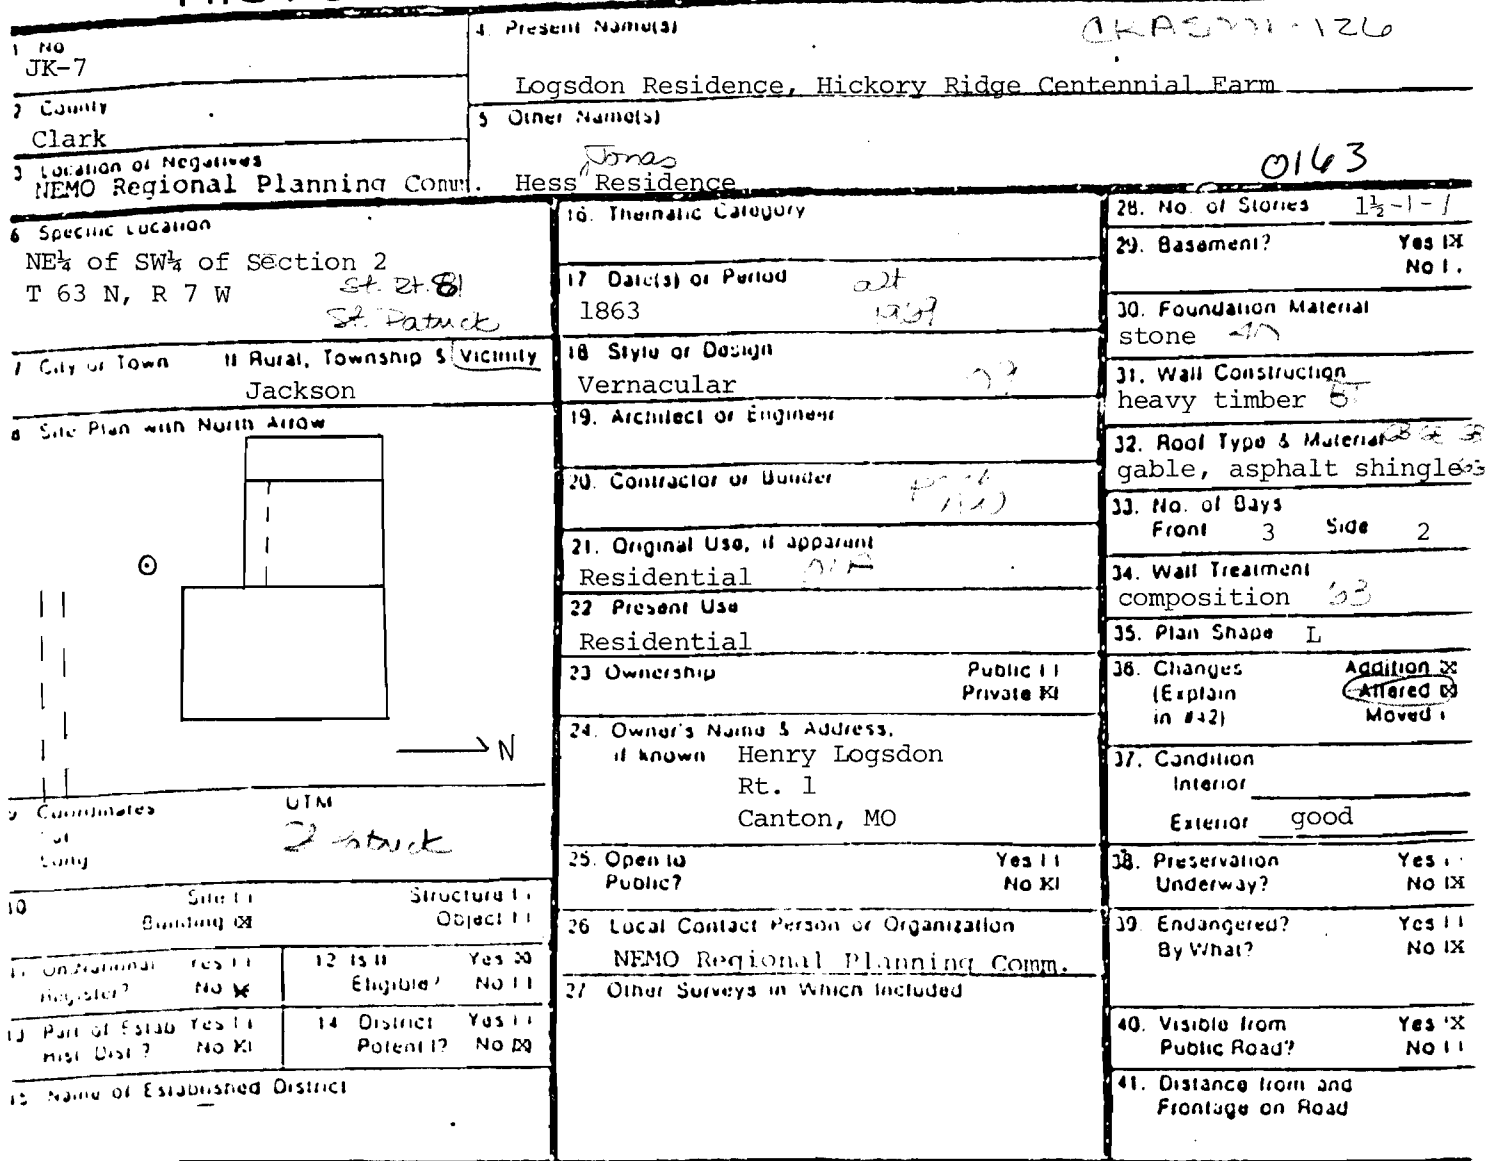 1 No
JK-7
2 County
Clark
3 Location of Negatives
NEMO Regional Planning Comm.
4. Present Name(s)
Logsdon Residence, Hickory Ridge Centennial Farm
5 Other Name(s)
Jonas
Hess Residence
0163
6 Specific Location
NE¼ of SW¼ of Section 2
T 63 N, R 7 W
St. Rt. 81
St. Patrick
7 City or Town If Rural, Township & Vicinity
Jackson
8 Site Plan with North Arrow
N
9 Coordinates UTM
Lat
Long
10 Site
Structure
Building X
Object
11 On National Register? Yes
No X
12 Is It Eligible? Yes X
No
13 Part of Estab Hist. Dist.? Yes
No X
14 District Potent'l? Yes
No X
15 Name of Established District
16. Thematic Category
17 Date(s) or Period
1863
alt
1939
18 Style or Design
Vernacular
19. Architect or Engineer
20. Contractor or Builder
21. Original Use, if apparent
Residential
22 Present Use
Residential
23 Ownership Public
Private X
24. Owner's Name & Address,
if known Henry Logsdon
Rt. 1
Canton, MO
25. Open to Public? Yes
No X
26 Local Contact Person or Organization
NEMO Regional Planning Comm.
27 Other Surveys in Which Included
28. No. of Stories 1½-1-1
29. Basement? Yes X
No
30. Foundation Material
stone
31. Wall Construction
heavy timber
32. Roof Type & Material
gable, asphalt shingle
33. No. of Bays
Front 3 Side 2
34. Wall Treatment
composition 63
35. Plan Shape L
36. Changes Addition X
(Explain Altered X
in #42) Moved
37. Condition
Interior
Exterior good
38. Preservation Underway? Yes
No X
39. Endangered? Yes
By What? No X
40. Visible from Public Road? Yes X
No
41. Distance from and
Frontage on Road